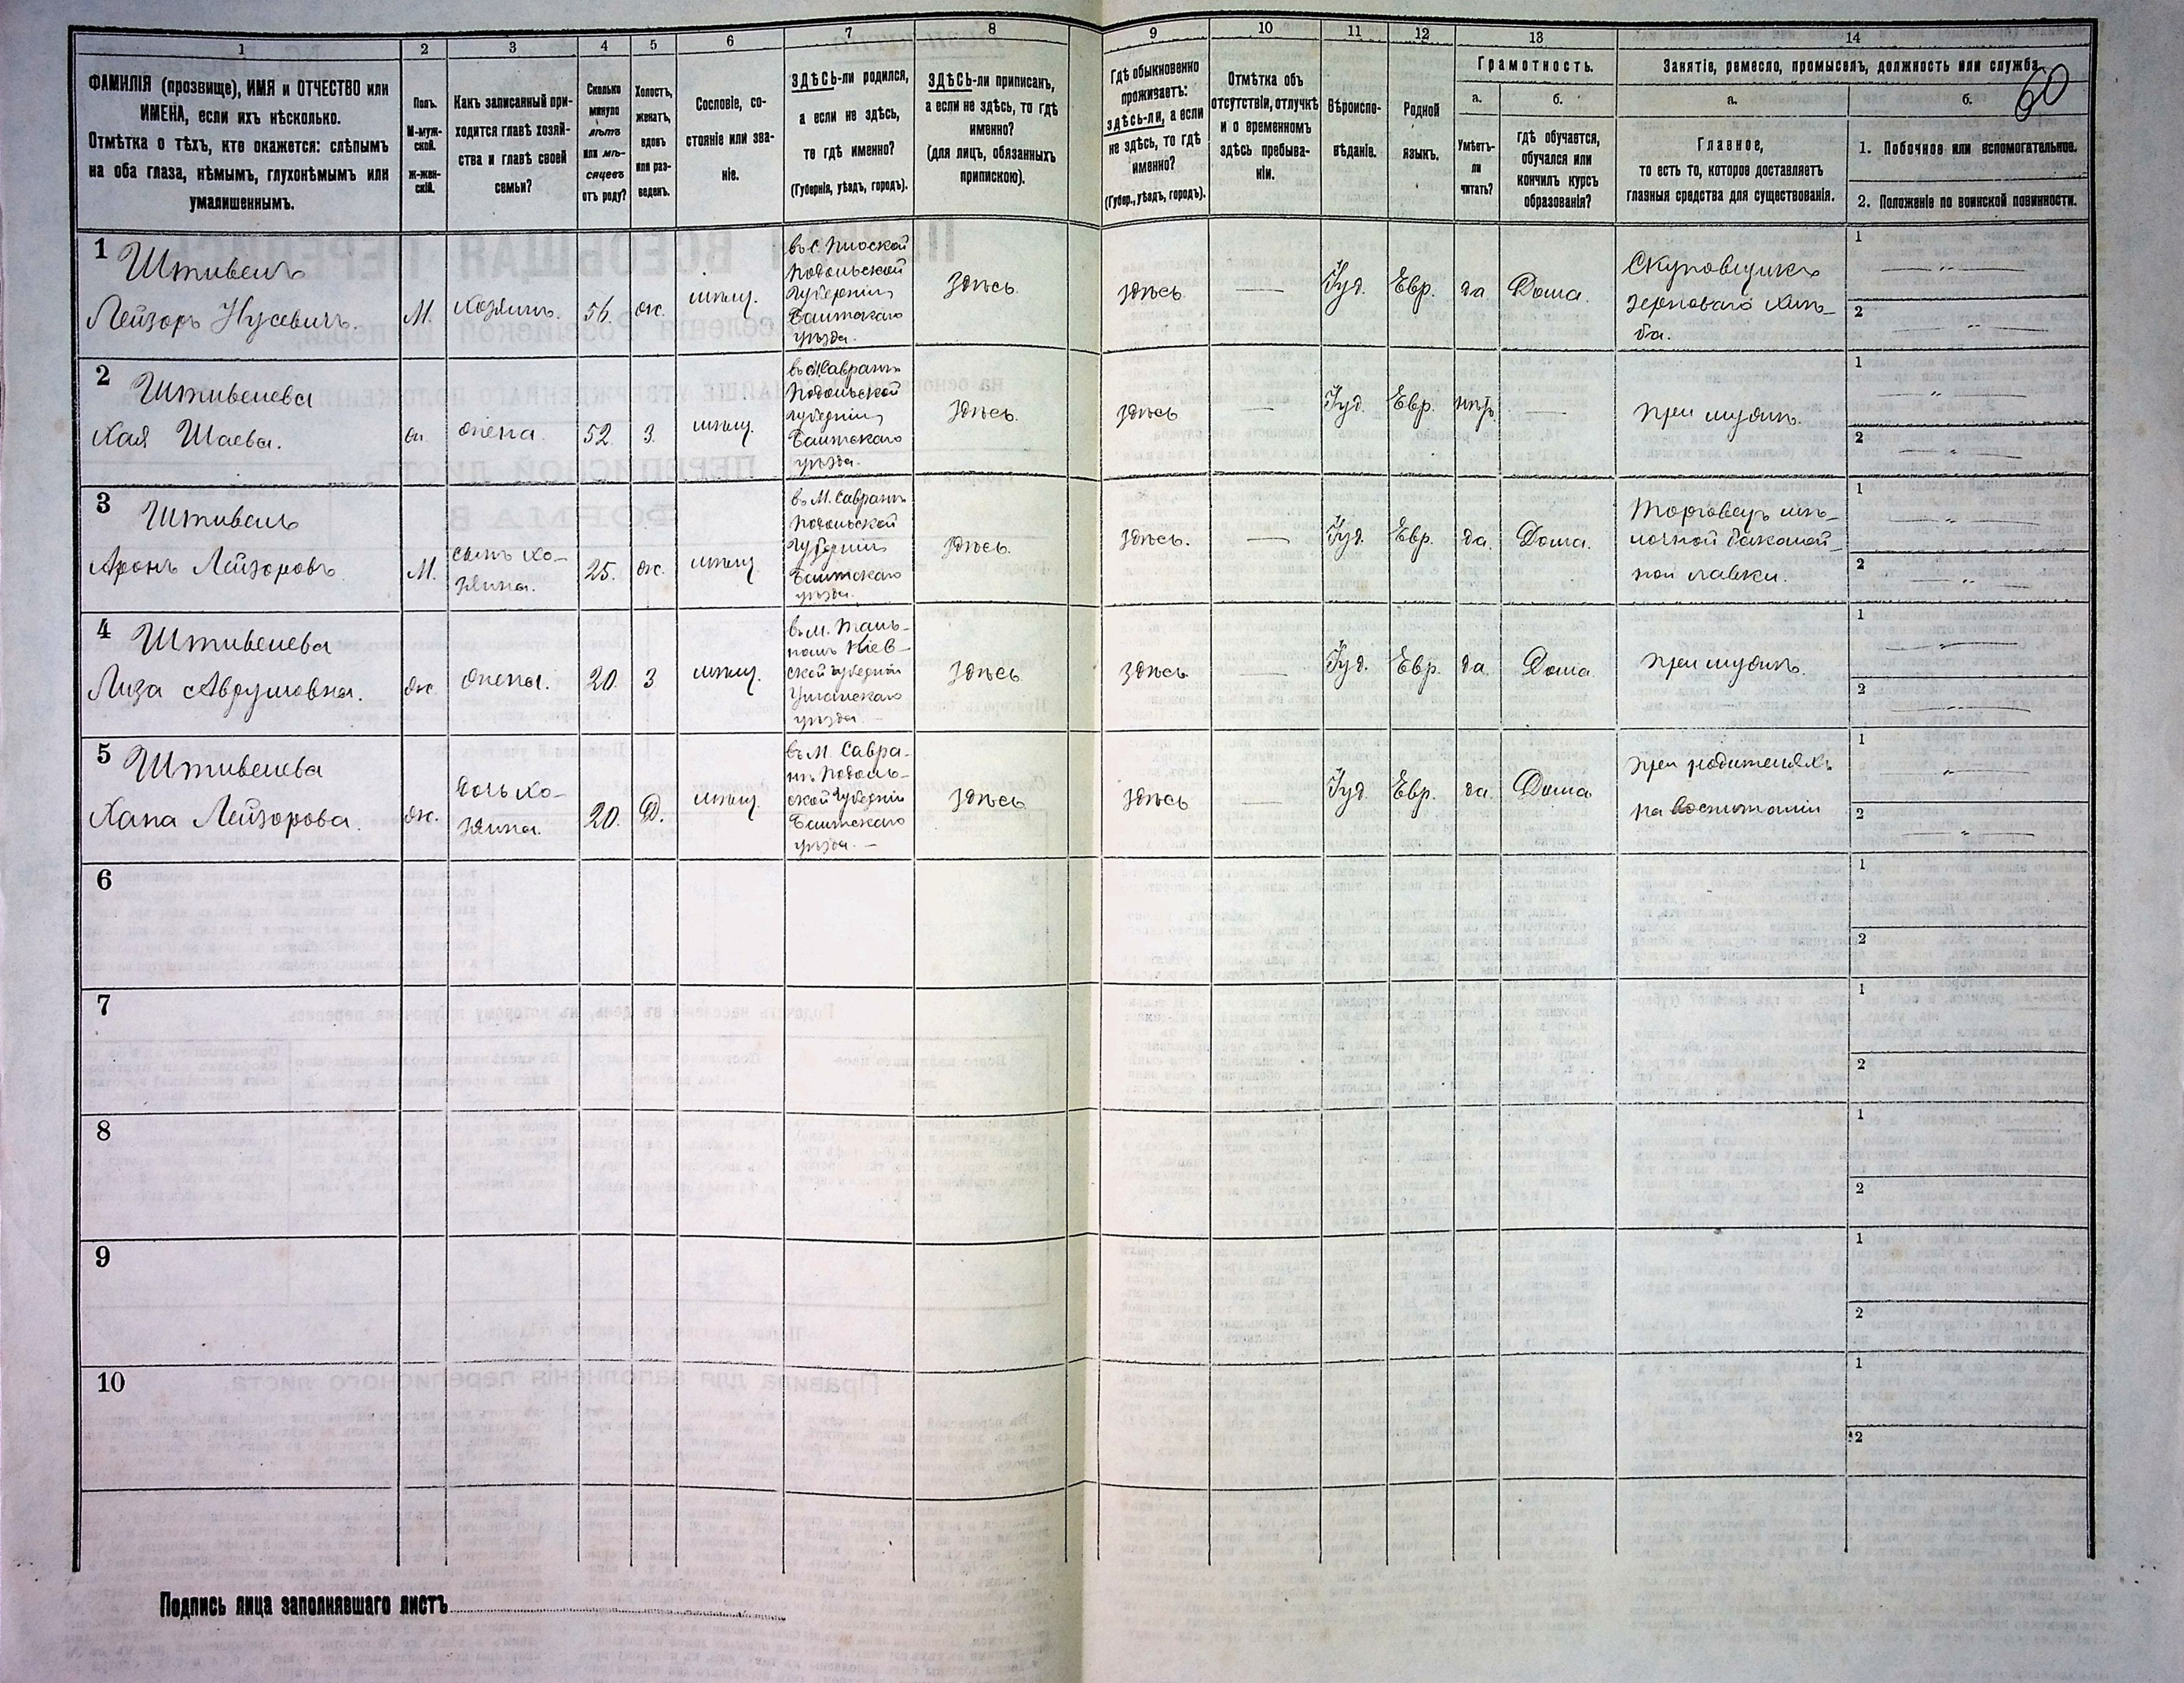 1 2 3 4 5 6 7 8 9 10 11 12 13 14
60
ФАМИЛІЯ (прозвище), ИМЯ и ОТЧЕСТВО или
ИМЕНА, если ихъ нѣсколько.
Отмѣтка о тѣхъ, кто окажется: слѣпымъ
на оба глаза, нѣмымъ, глухонѣмымъ или
умалишеннымъ.
Полъ.
М-муж-
ской.
Ж-жен-
скій.
Какъ записанный при-
ходится главѣ хозяй-
ства и главѣ своей
семьи?
Сколько
минуло
лѣтъ
или мѣ-
сяцевъ
отъ роду?
Холостъ,
женатъ,
вдовъ
или раз-
веденъ.
Сословіе, со-
стояніе или зва-
ніе.
ЗДѢСЬ-ли родился,
а если не здѣсь,
то гдѣ именно?
(Губернія, уѣздъ, городъ).
ЗДѢСЬ-ли приписанъ,
а если не здѣсь, то гдѣ
именно?
(для лицъ, обязанныхъ
припискою).
Гдѣ обыкновенно
проживаетъ:
здѣсь-ли, а если
не здѣсь, то гдѣ
именно?
(Губер., уѣздъ, городъ).
Отмѣтка объ
отсутствіи, отлучкѣ
и о временномъ
здѣсь пребыва-
ніи.
Вѣроиспо-
вѣданіе.
Родной
языкъ.
Грамотность.
а. б.
Умѣетъ-
ли
читать?
гдѣ обучается,
обучался или
кончилъ курсъ
образованія?
Занятіе, ремесло, промыселъ, должность или служба.
а. б.
Главное,
то есть то, которое доставляетъ
главныя средства для существованія.
1. Побочное или вспомогательное.
2. Положеніе по воинской повинности.
1 Штивель
Лейзоръ Нусевичъ.
М.
Хозяинъ.
56.
ж.
мѣщ.
Подольской
губерніи,
Балтскаго
уѣзда.
Здѣсь.
здѣсь.
Іуд.
Евр.
да
Дома.
Скуповщикъ
зерноваго хлѣ-
ба.
1
2
2 Штивелева
Хая Шаева.
ж.
жена.
52.
З.
мѣщ.
въ М. Саврань
Подольской
губерніи,
Балтскаго
уѣзда.
Здѣсь.
здѣсь
Іуд.
Евр.
нѣтъ
при мужѣ.
1
2
3 Штивель
Аронъ Лейзоровъ.
М.
сынъ хо-
зяина.
25.
ж.
мѣщ.
въ М. Саврань
Подольской
губерніи
Балтскаго
уѣзда.
Здѣсь.
здѣсь.
Іуд.
Евр.
да.
Дома.
Торговецъ мѣ-
лочной бакалей-
ной лавки.
1
2
4 Штивелева
Лиза Аврумовна.
ж.
жена.
20.
З
мѣщ.
въ м. Таль-
номъ Кіев-
ской губерніи
Уманскаго
уѣзда.
Здѣсь
здѣсь
Іуд.
Евр.
да.
Дома
при мужѣ.
1
2
5 Штивелева
Хана Лейзорова.
ж.
дочь хо-
зяина.
20.
Д.
мѣщ.
въ М. Савра-
нѣ Подоль-
ской губерніи
Балтскаго
уѣзда.
Здѣсь
здѣсь
Іуд.
Евр.
да.
Дома
при родителяхъ
на воспитаніи
1
2
6
1
2
7
1
2
8
1
2
9
1
2
10
1
2
Подпись лица заполнявшаго листъ